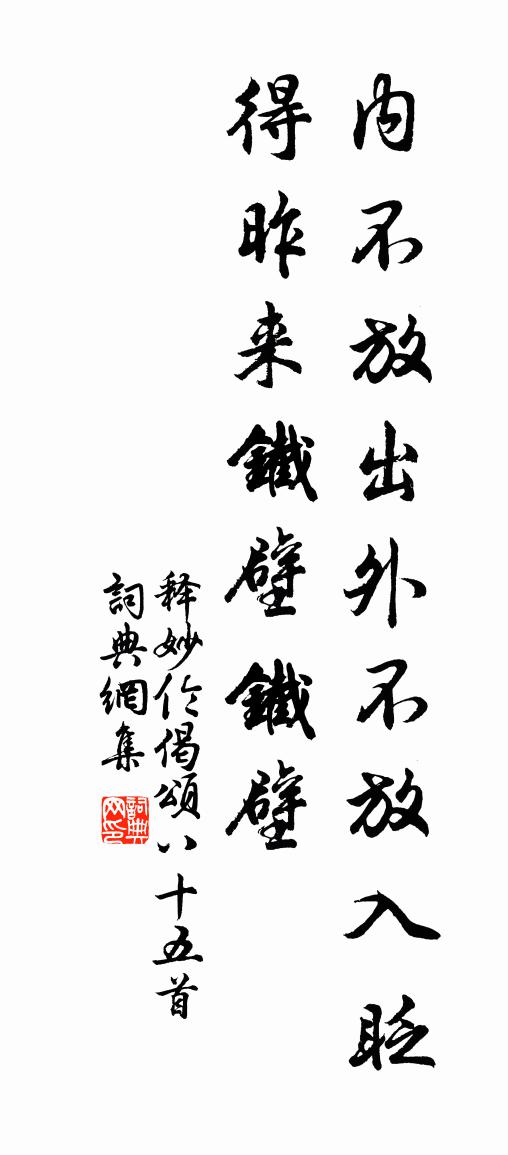 内不放出外不放入眨
得昨来鐵壁鐵壁
释妙伦偈頌八十五首
詞典網集
詞典网印